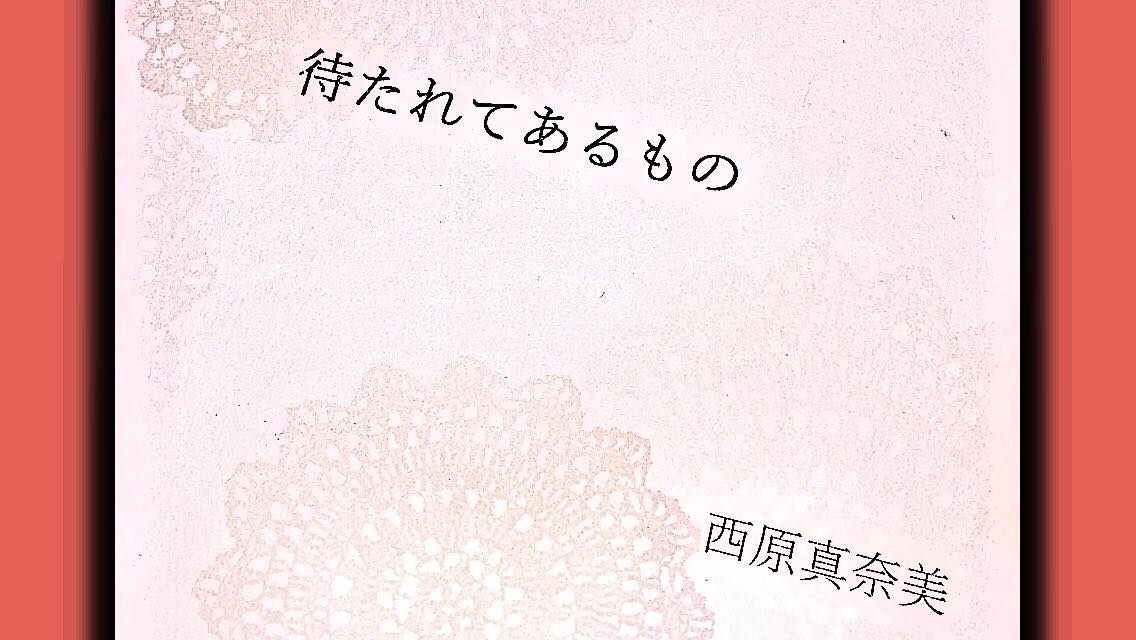 待たれてあるもの
西原真奈美